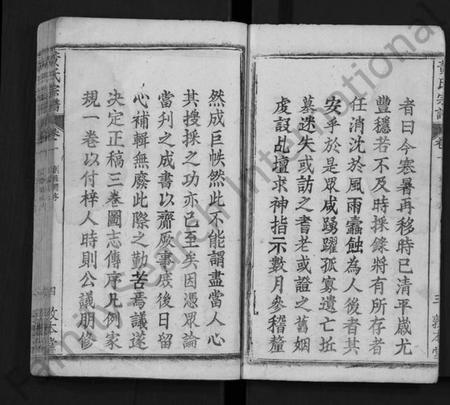 黃氏宗譜
卷一
三
敦本堂
者曰今寒暑再移時已清平歲尤
豐穩若不及時採錄將有所存者
任消沈於風雨蠹蝕為人後者其
安乎於是眾咸踴躍孤寡遺亡址
墓迷失或訪之耆老或證之舊姻
虔設乩壇求神指示數月參稽釐
然成巨帙然此不能謂盡當人心
其搜採之功亦已至矣因憑眾論
當利之成書以齎厥事歲後日留
心補輯無廢此際之勤苦焉議遂
決定正稿三卷圖志傳序凡例家
規一卷以付梓人時則公議朋修
黃氏宗譜
卷一
四
敦本堂
FamilySearch International